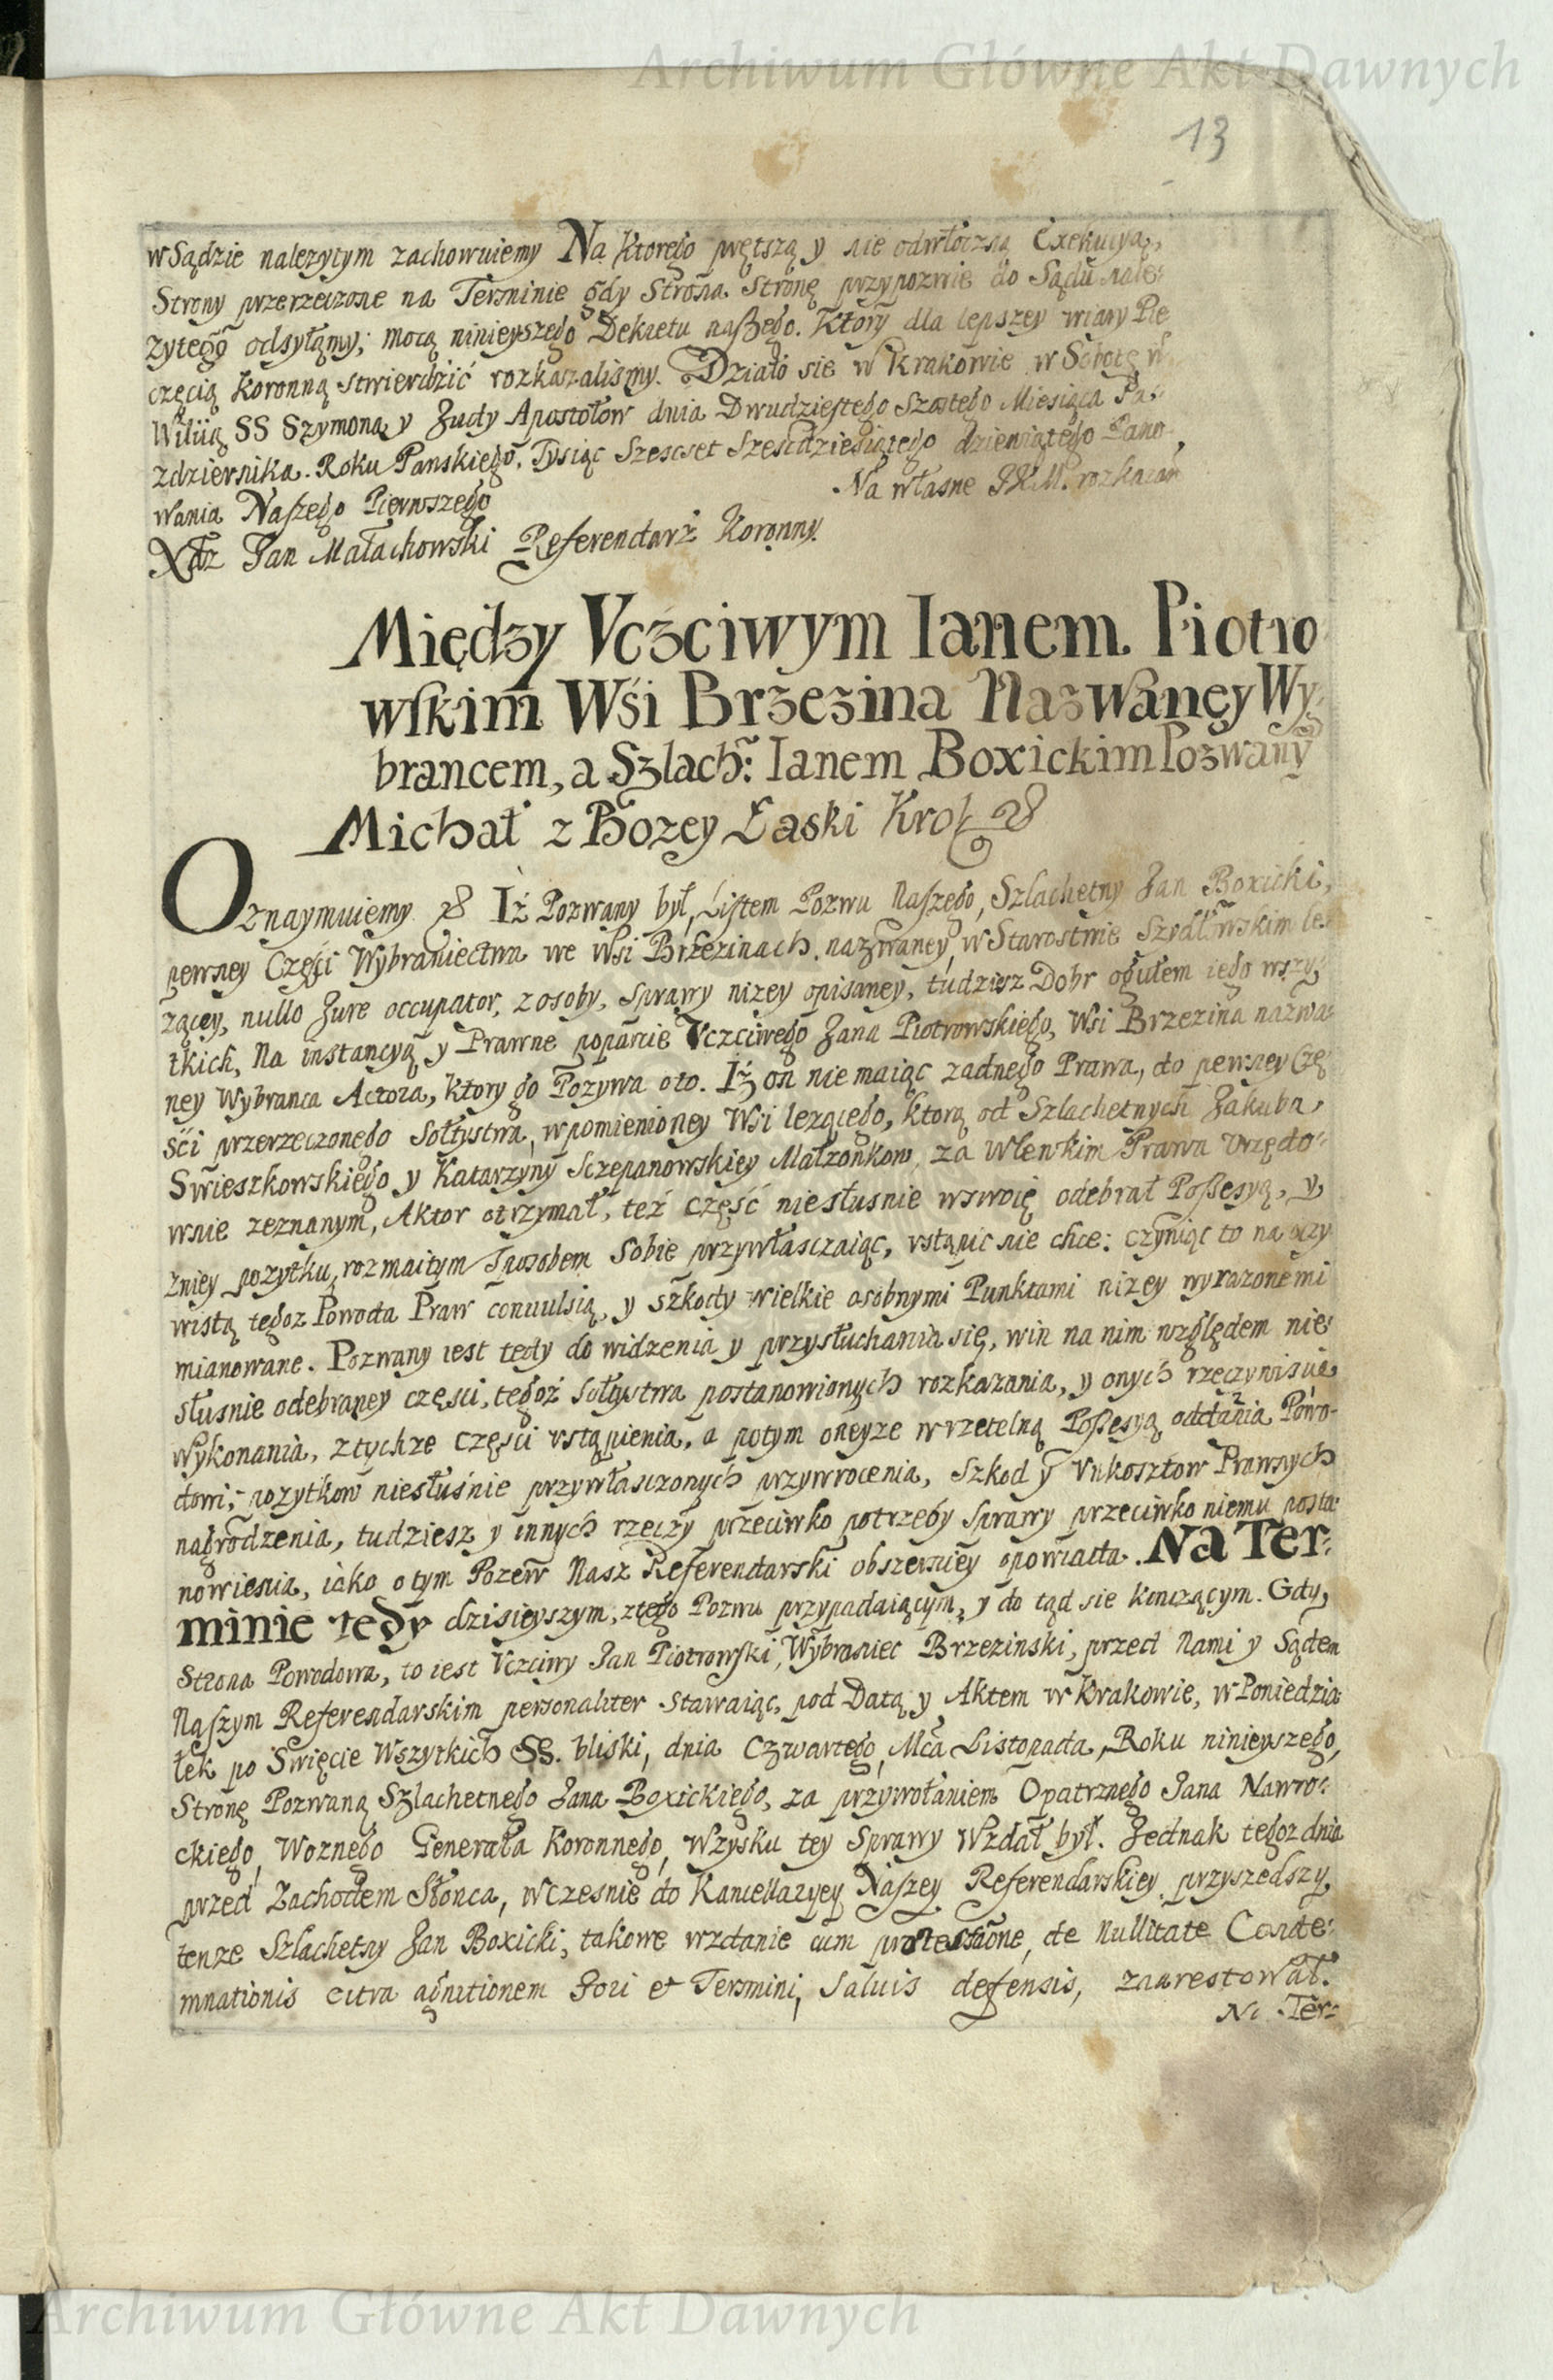 Archiwum Główne Akt Dawnych
13
w Sądzie nalezytym zachowuiemy Na ktorego prętszą y nie odwłoczną Exekucyą,
Strony przerzeczone na Terminie gdy Strona Stronę przypozwie do Sądu nale:
zytego odsyłamy; mocą ninieyszego Dekretu naszego. Ktory dla lepszey wiary Pie
częcią Koronną stwierdzić rozkazalismy. Działo sie w Krakowie w Sobotę w
Wiliią SS Szymona y Judy Apostołow dnia Dwudziestego Szostego Miesiąca Pa:
zdziernika. Roku Panskiego, Tysiąc Szescset Szescdziesiątego dziewiątego Pano
wania Naszego Pierwszego Na własne JKM. rozkazan
Xdz Jan Małachowski Referendarz Koronny.
Między Vczciwym Ianem Piotro
wskim Wśi Brzezina Nazwaney Wy:
brancem, a Szlach: Ianem Boxickim Pozwany
Michał z Bozey Łaski Krol &
Oznaymuiemy & Iż Pozwany był, Listem Pozwu Naszego, Szlachetny Jan Boxicki,
pewney Części Wybraniectwa we Wsi Brzezinach nazwaney, w Starostwie Szydłowskim le:
zącey, nullo Jure occupator, z osoby, sprawy nizey opisaney, tudziesz Dobr ogułem iego wszy:
tkich, Na instancyą y Prawne poparcie Vczciwego Jana Piotrowskiego, Wsi Brzezina nazwa:
ney Wybranca Actora, ktory go Pozywa oto. Iż on nie maiąc zadnego Prawa, do pewney Czę
ści przerzeczonego Sołtystwa, w pomienioney Wsi lezącego, ktorą od Szlachetnych Jakuba
Swieszkowskiego y Katarzyny Sczepanowskiey Małzonkow, za Wlewkim Prawa Vrzędo:
wnie zeznanym, Aktor otrzymał, też część niesłusnie w swoię odebrał Possesyą, y
zniey pozytku rozmaitym sposobem sobie przywłasczaiąc, vstąpic nie chce: czyniąc to na oczy
wistą tegoz Powoda Praw conuulsią, y szkody wielkie osobnymi Punktami nizey wyrazonemi
mianowane. Pozwany iest tedy do widzenia y przysłuchania się, win na nim względem nie:
słusnie odebraney części, tegoż sołtystwa postanowionych rozkazania, y onych rzeczywiście
Wykonania, z tychze części vstąpienia, a potym oneyze w rzetelną Possesyą oddania Powo-
dowi; pozytkow niesłuśnie przywłasczonych przywrocenia, Szkod y Vnkosztow Prawnych
nagrodzenia, tudziesz y innych rzeczy przeciwko potrzeby sprawy przeciwko niemu posta:
nowienia, iako o tym Pozew Nasz Referendarski obszerniey opowiada. Na Ter:
minie tedy dzisieyszym, z tego Pozwu przypadaiącym, y do tąd sie konczącym. Gdy,
Strona Powodowa, to iest Vczciwy Jan Piotrowski, Wybraniec Brzezinski, przed Nami y Sądem
Naszym Referendarskim personaliter stawaiąc, pod Datą y Aktem w Krakowie, w Poniedzia:
łek po Święcie Wszytkich SS. bliski, dnia Czwartego, Mca Listopada, Roku ninieyszego,
Stronę Pozwaną Szlachetnego Jana Boxickiego, za przywołaniem Opatrznego Jana Nawro:
ckiego, Woznego Generała Koronnego, Wzysku tey Sprawy Wzdał był. Jednak tegoz dnia
przed Zachodem Słonca, wczesnie do Kancellaryey Naszey Referendarskiey przyszedszy
tenze Szlachetny Jan Boxicki, takowe wzdanie cum protestaõne, de Nullitate Conde:
mnationis citra agnitionem Fori et Termini, Saluis defensis, zaarestował.
Na Ter:
Archiwum Główne Akt Dawnych